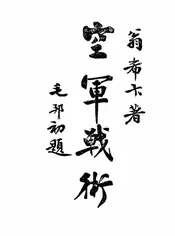 翁希卜著
空軍戰術
毛邦初題